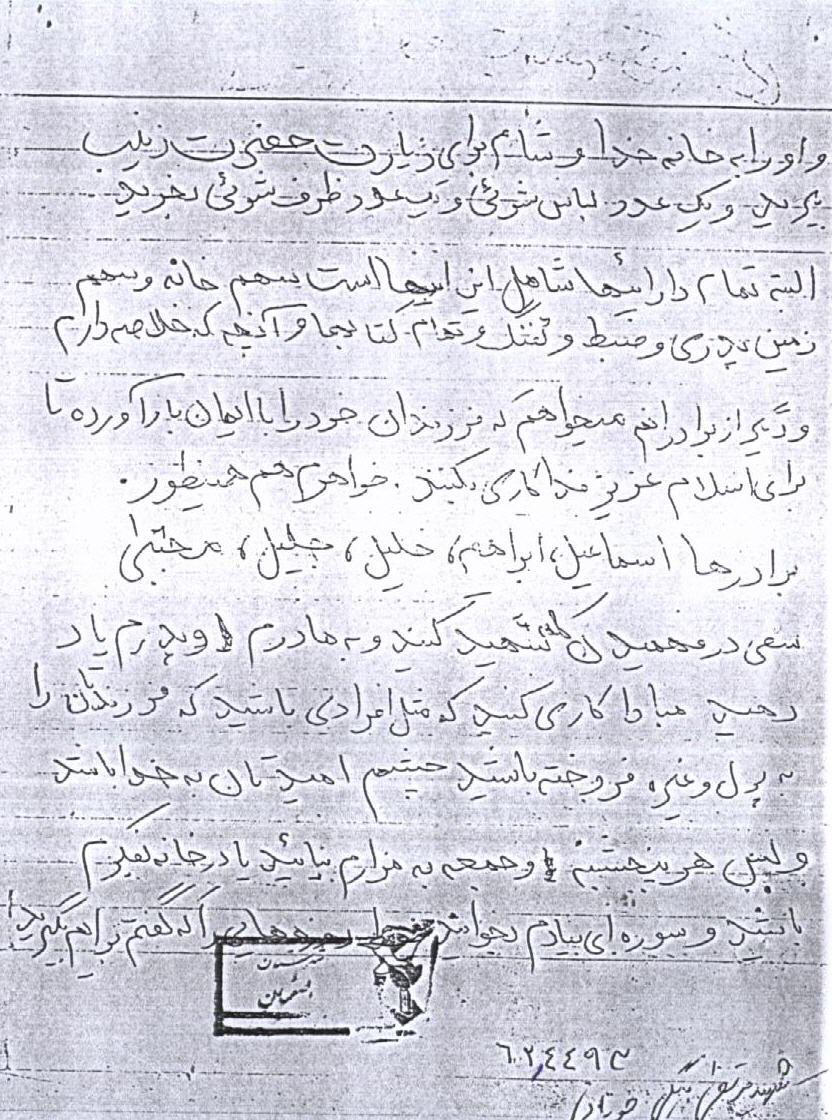 و او را به خانه خدا و شام برای زیارت حضرت زینب
ببرید و یک عدد لباس شوئی و یک عدد ظرف شوئی بخرید
البته تمام دارائیها شامل این اینها است سهم خانه و سهم
زمین پدری و ضبط و تفنگ و تمام کتابها و آنچه که خلاصه دارم
و دیگر از برادرانم میخواهم که فرزندان خود را با ایمان بار آورده تا
برای اسلام عزیز فداکاری بکنند. خواهرم هم همینطور.
برادرها اسماعیل، ابراهیم، خلیل، جلیل، مجتبی
سعی در فهمیدن کلمه شهید کنید و به مادرم و پدرم یاد
دهید مبادا کاری کنید که مثل افرادی باشید که فرزندتان را
به پول و غیره فروخته باشید چشم امیدتان به خدا باشد
و لیس هر پنجشنبه و جمعه به مزارم بیائید یا در خانه بفکرم
باشید و سوره ای بیادم بخوانید روزه هایی را که گفتم برایم بگیرید
بنیاد شهید
٦٠٢٤٤٩٣
شهید مرتضی